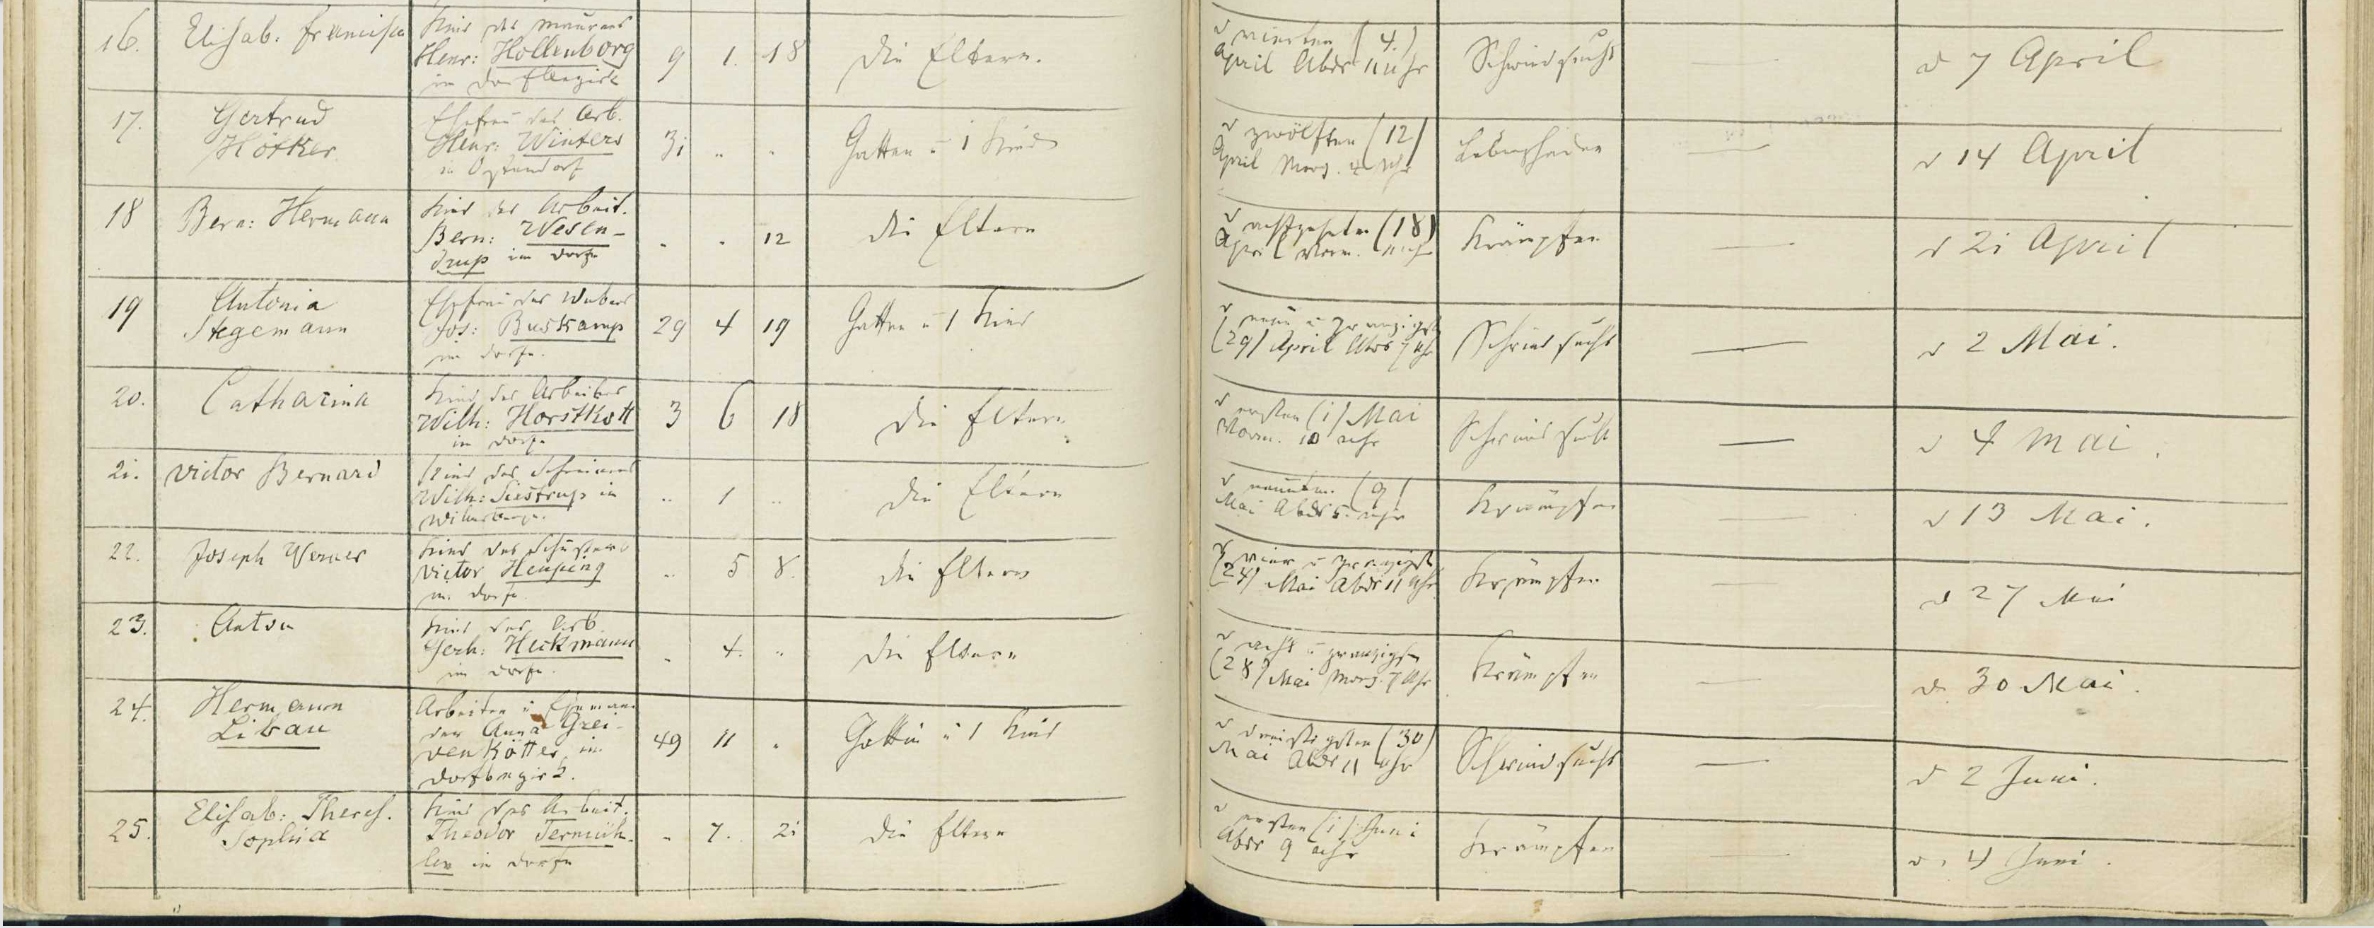 16. Elisab. Francisca
Kind des Maurers
Henr: Hollenborg
im Dorfbezirk
9 1. 18
die Eltern.
d vierten (4.)
April Abds 11 Uhr
Schwindsucht
—
d 7 April
17. Gertrud
Hötker
Ehefrau des Arb.
Henr: Winters
in Ostendorf
31 " "
Gatten u 1 Kind
d zwölften (12)
April Morg. 4 Uhr
Leberschaden
—
d 14 April
18 Bern: Hermann
Kind des Arbeit.
Bern: Wesen-
drup im Dorfe
" " 12
die Eltern
d achtzehnten (18)
April Morn. 11 Uhr
Krämpfen
—
d 21 April
19 Antonia
Stegemann
Ehefrau des Webers
Jos: Buskamp
im Dorfe.
29 4 19
Gatten u 1 Kind
d neun u zwanzigst
(29) April Abds 7 Uhr
Schwindsucht
—
d 2 Mai.
20. Catharina
Kind des Arbeiters
Wilh: Horstkott
im Dorfe
3 6 18
die Eltern
d ersten (1) Mai
Morn. 10 Uhr
Schwindsucht
—
d 4 Mai.
21. Victor Bernard
Kind des Schreiners
Wilh: Siestrup in
" 1 "
die Eltern
d neunten (9)
Mai Abds 5 Uhr
Krämpfen
—
d 13 Mai.
22. Joseph Werner
Kind des Schusters
Victor
im Dorfe.
" 5 8.
die Eltern
d vier u zwanzigst
(24) Mai Abds 11 Uhr
Krämpfen
—
d 27 Mai
23. Anton
Kind des Arb.
Gerh: Heckmann
im Dorfe.
" 4. "
die Eltern
d acht u zwanzigsten
(28) Mai Morg. 7 Uhr
Krämpfen
—
d. 30 Mai.
24. Hermann
Libau
Arbeiter u Ehemann
der Anna Grei-
venkötter im
Dorfbezirk.
49 11 "
Gattin u 1 Kind
d dreissigsten (30)
Mai Abds 11 Uhr
Schwindsucht
—
d 2 Juni.
25. Elisab: Theres.
Sophia
Kind des Arbeit.
Theodor Termüh-
len im Dorfe
" 7. 21
die Eltern
d ersten (1) Juni
Abds 9 Uhr
Krämpfen
—
d. 4 Juni.